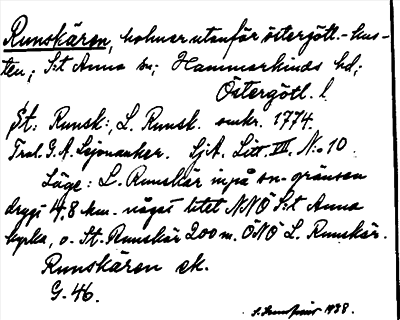 Runskären, holmar utanför östergötl.-kus-
ten; S:t Anna sn; Hammarkinds hd;
Östergötl. l.
St: Runsk:, L. Runsk. omkr. 1774.
Tral. G. A. Sjöanker. SjA. Litt. VII. N:o 10.
Läge: L. Runskär inpå sn-gränsen
drygt 4,8 km. något litet NNÖ S:t Anna
kyrka, o. St. Runskär 200 m. ÖNÖ L. Runskär.
Runskären ek.
G. 46.
1938.